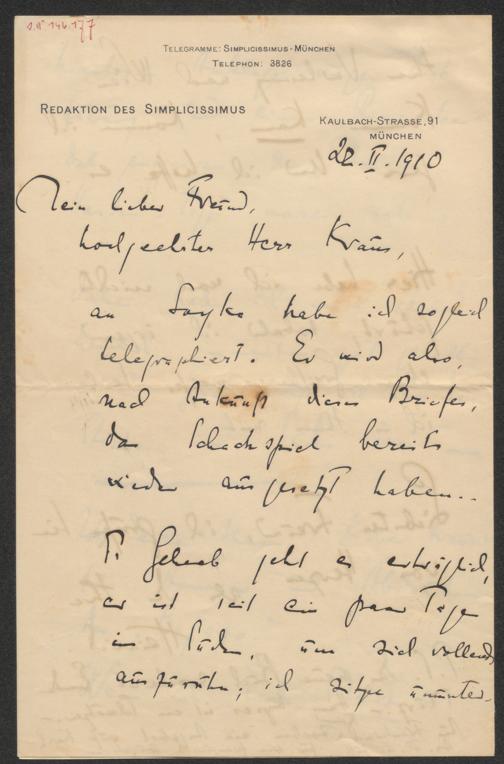 TELEGRAMME: SIMPLICISSIMUS-MÜNCHEN
TELEPHON: 3826
REDAKTION DES SIMPLICISSIMUS
KAULBACH-STRASSE, 91
MÜNCHEN
22. II. 1910
Mein lieber Freund,
hochgeehrter Herr Kraus,
an habe ich sogleich
telegraphiert. Er wird also,
nach Ankunft dieses Briefes,
das Schachspiel bereits
wieder ausgesetzt haben..
geht es erträglich,
er ist seit ein paar Tagen
im Süden, um sich vollends
auszuruhn; ich sitze ununter-